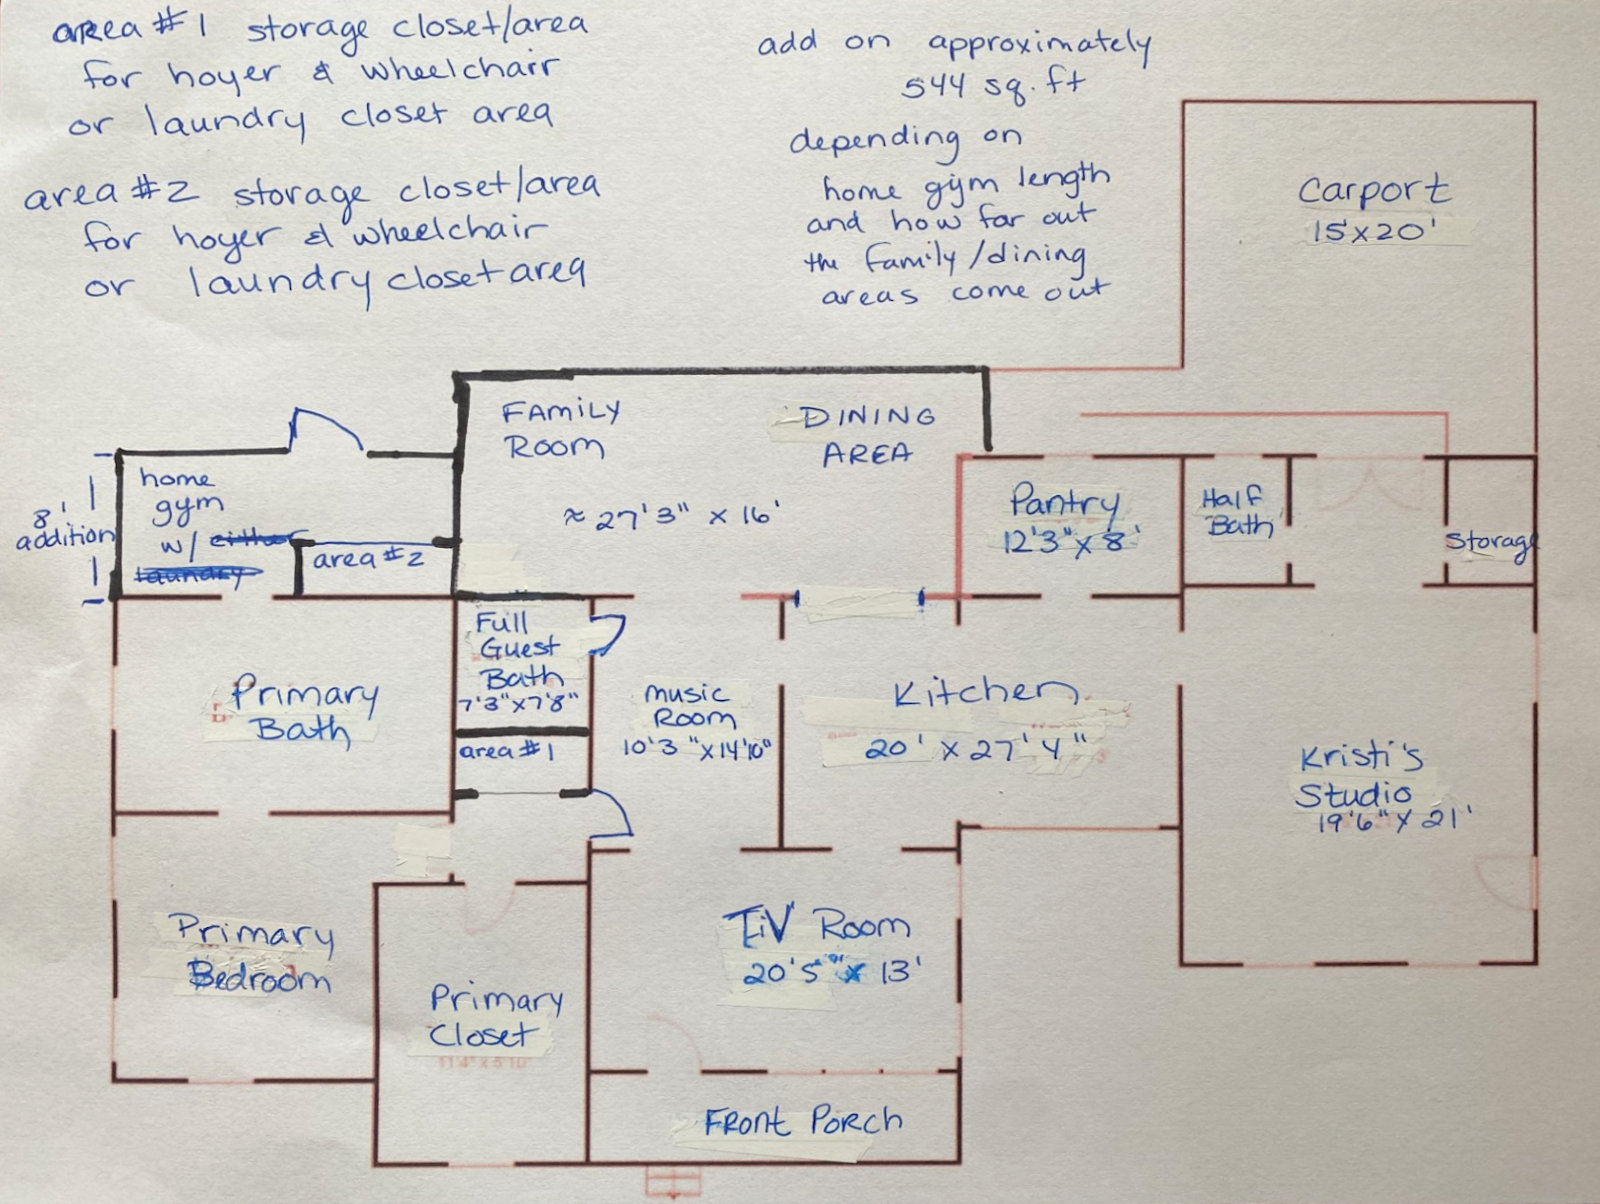 area #1 storage closet/area
for hoyer & wheelchair
or laundry closet area
area #2 storage closet/area
for hoyer & wheelchair
or laundry closet area
add on approximately
544 sq. ft
depending on
home gym length
and how far out
the family/dining
areas come out
Carport
15x20'
FAMILY
ROOM
DINING
AREA
≈ 27'3" x 16'
home
gym
w/ either
laundry
8'
addition
area #2
Pantry
12'3" x 8'
Half
Bath
Storage
Full
Guest
Bath
7'3"x7'8"
area #1
Primary
Bath
music
Room
10'3"x14'10"
Kitchen
20' x 27'4"
Kristi's
Studio
19'6" x 21'
Primary
Bedroom
Primary
Closet
T.V Room
20'5" x 13'
Front Porch